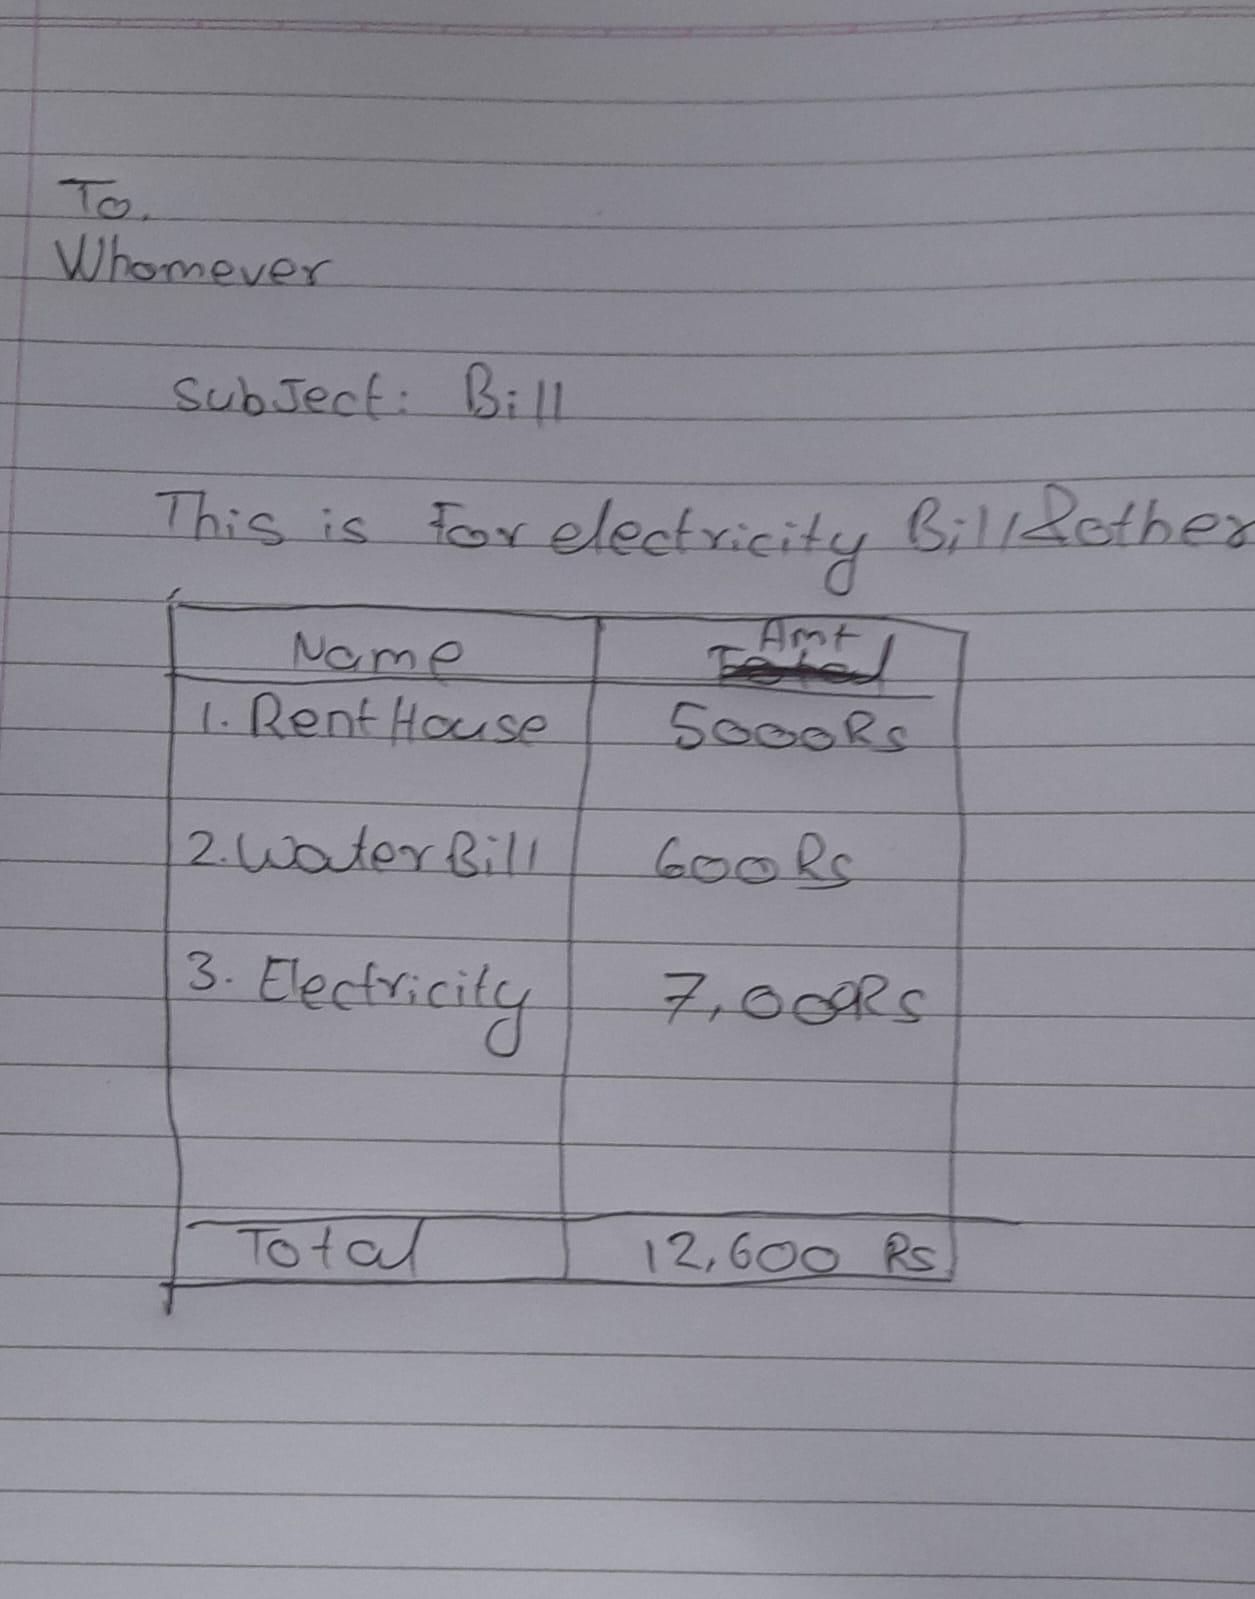 To,
Whomever
Subject: Bill
This is For electricity Bill & other
Name Amt
1. Rent House 5000Rs
2. Water Bill 600 Rs
3. Electricity 7,000Rs
Total 12,600 Rs